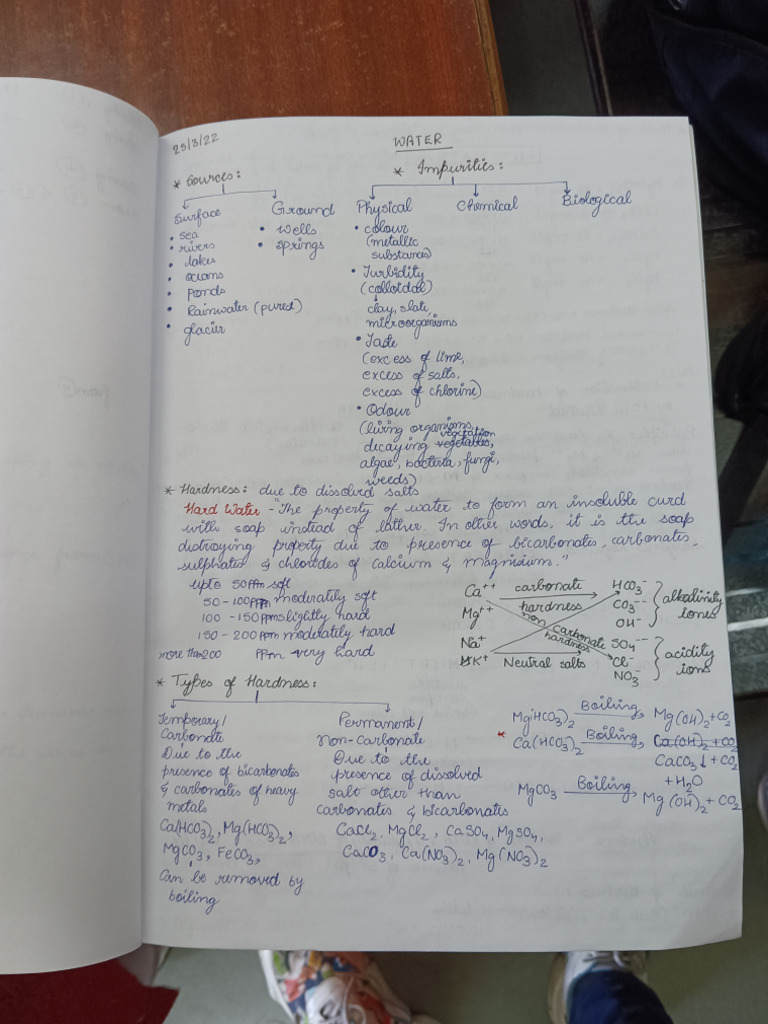 25/3/22
WATER
* Sources:
Surface
• sea
• rivers
• lakes
• oceans
• Ponds
• Rainwater (purest)
• glacier
Ground
• Wells
• Springs
* Impurities:
Physical
• colour
(metallic
substances)
• Turbidity
(colloidal)
clay, slate,
microorganisms
• Taste
(excess of lime,
excess of salts,
excess of chlorine)
• Odour
(living organisms,
decaying vegetation
algae, bacteria, fungi,
weeds)
Chemical
Biological
* Hardness: due to dissolved salts
Hard Water - "The property of water to form an insoluble curd
with soap instead of lather. In other words, it is the soap
distroying property due to presence of bicarbonates, carbonates,
sulphates & chlorides of calcium & magnisium."
upto 50 ppm soft
50 - 100 ppm moderately soft
100 - 150 ppm slightly hard
150 - 200 ppm moderately hard
more than 200 ppm very hard
Ca++
Mg++
Na+
K+
carbonate
hardness
non carbonate
hardness
Neutral salts
HCO3-
CO3--
OH-
SO4--
Cl-
NO3-
alkalinity
Iones
acidity
ions
* Types of Hardness:
Temporary/
Carbonate
Due to the
presence of bicarbonates
& carbonates of heavy
metals
Ca(HCO3)2, Mg(HCO3)2,
MgCO3, FeCO3,
Can be removed by
boiling
Permanent/
non-Carbonate
Due to the
presence of dissolved
salt other than
carbonates & bicarbonates
CaCl2, MgCl2, CaSO4, MgSO4,
CaCO3, Ca(NO3)2, Mg(NO3)2
Mg(HCO3)2 Boiling Mg(OH)2 + CO2
* Ca(HCO3)2 Boiling Ca(OH)2 + CO2
CaCO3↓ + CO2
+ H2O
MgCO3 Boiling Mg(OH)2 + CO2